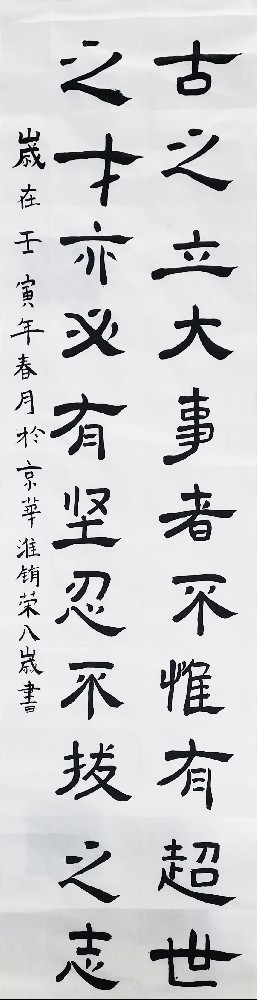 古之立大事者不惟有超世
之才亦必有坚忍不拔之志
歲在壬寅年春月於京華淮銷荣八歲書